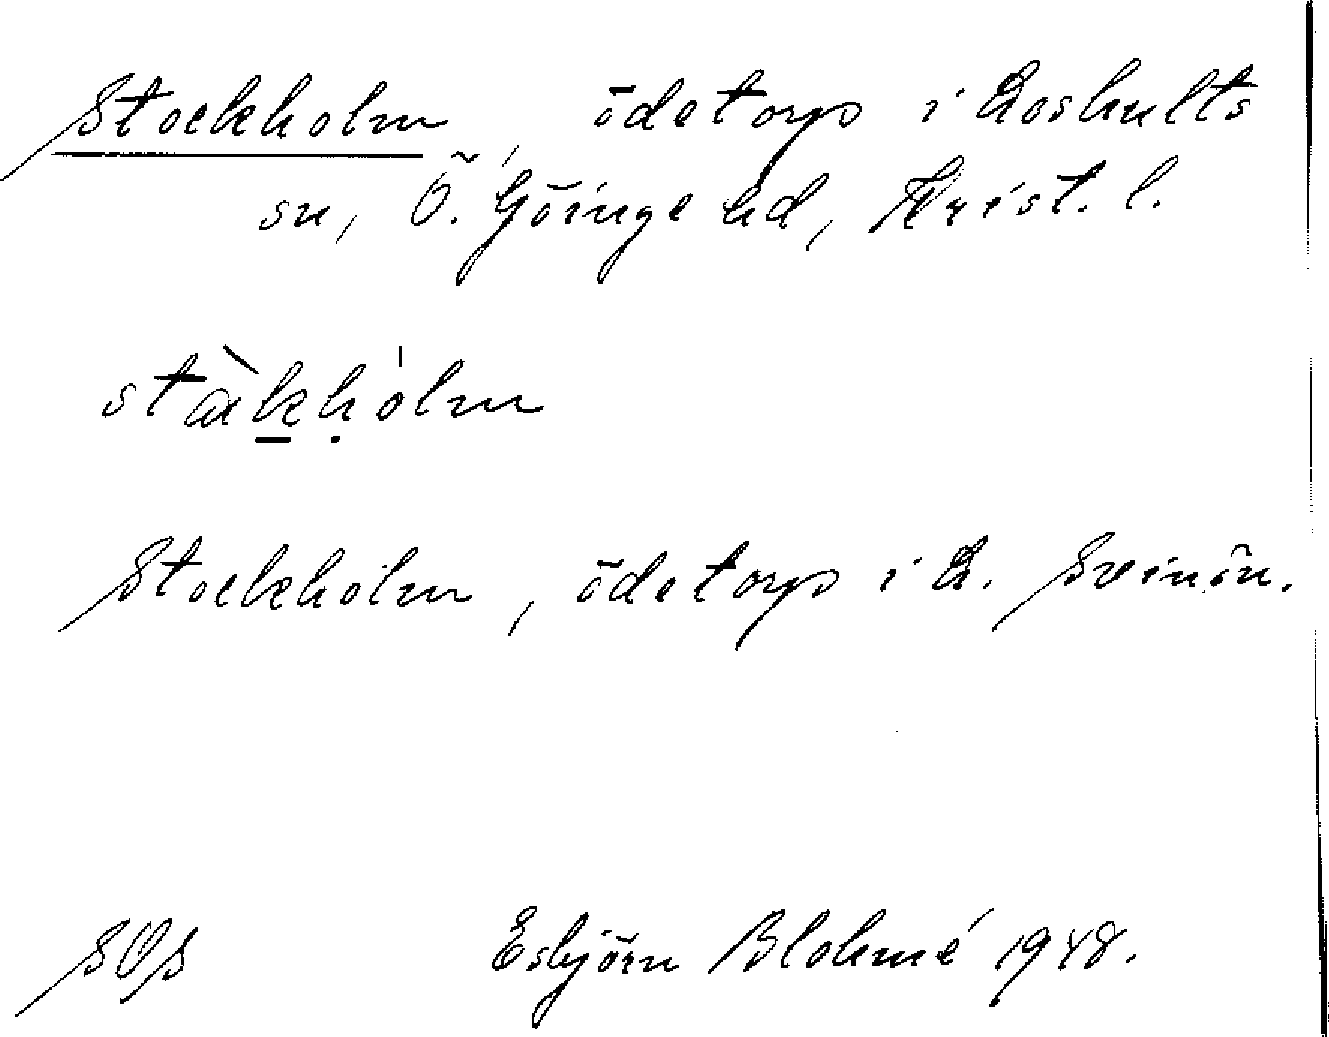 Stockholm, ödetorp i Loshults
sn, Ö. Göinge hd, Krist. l.
stàk̲ḥólm
Stockholm, ödetorp i L. Svinön.
SOS Esbjörn Blohmé 1948.